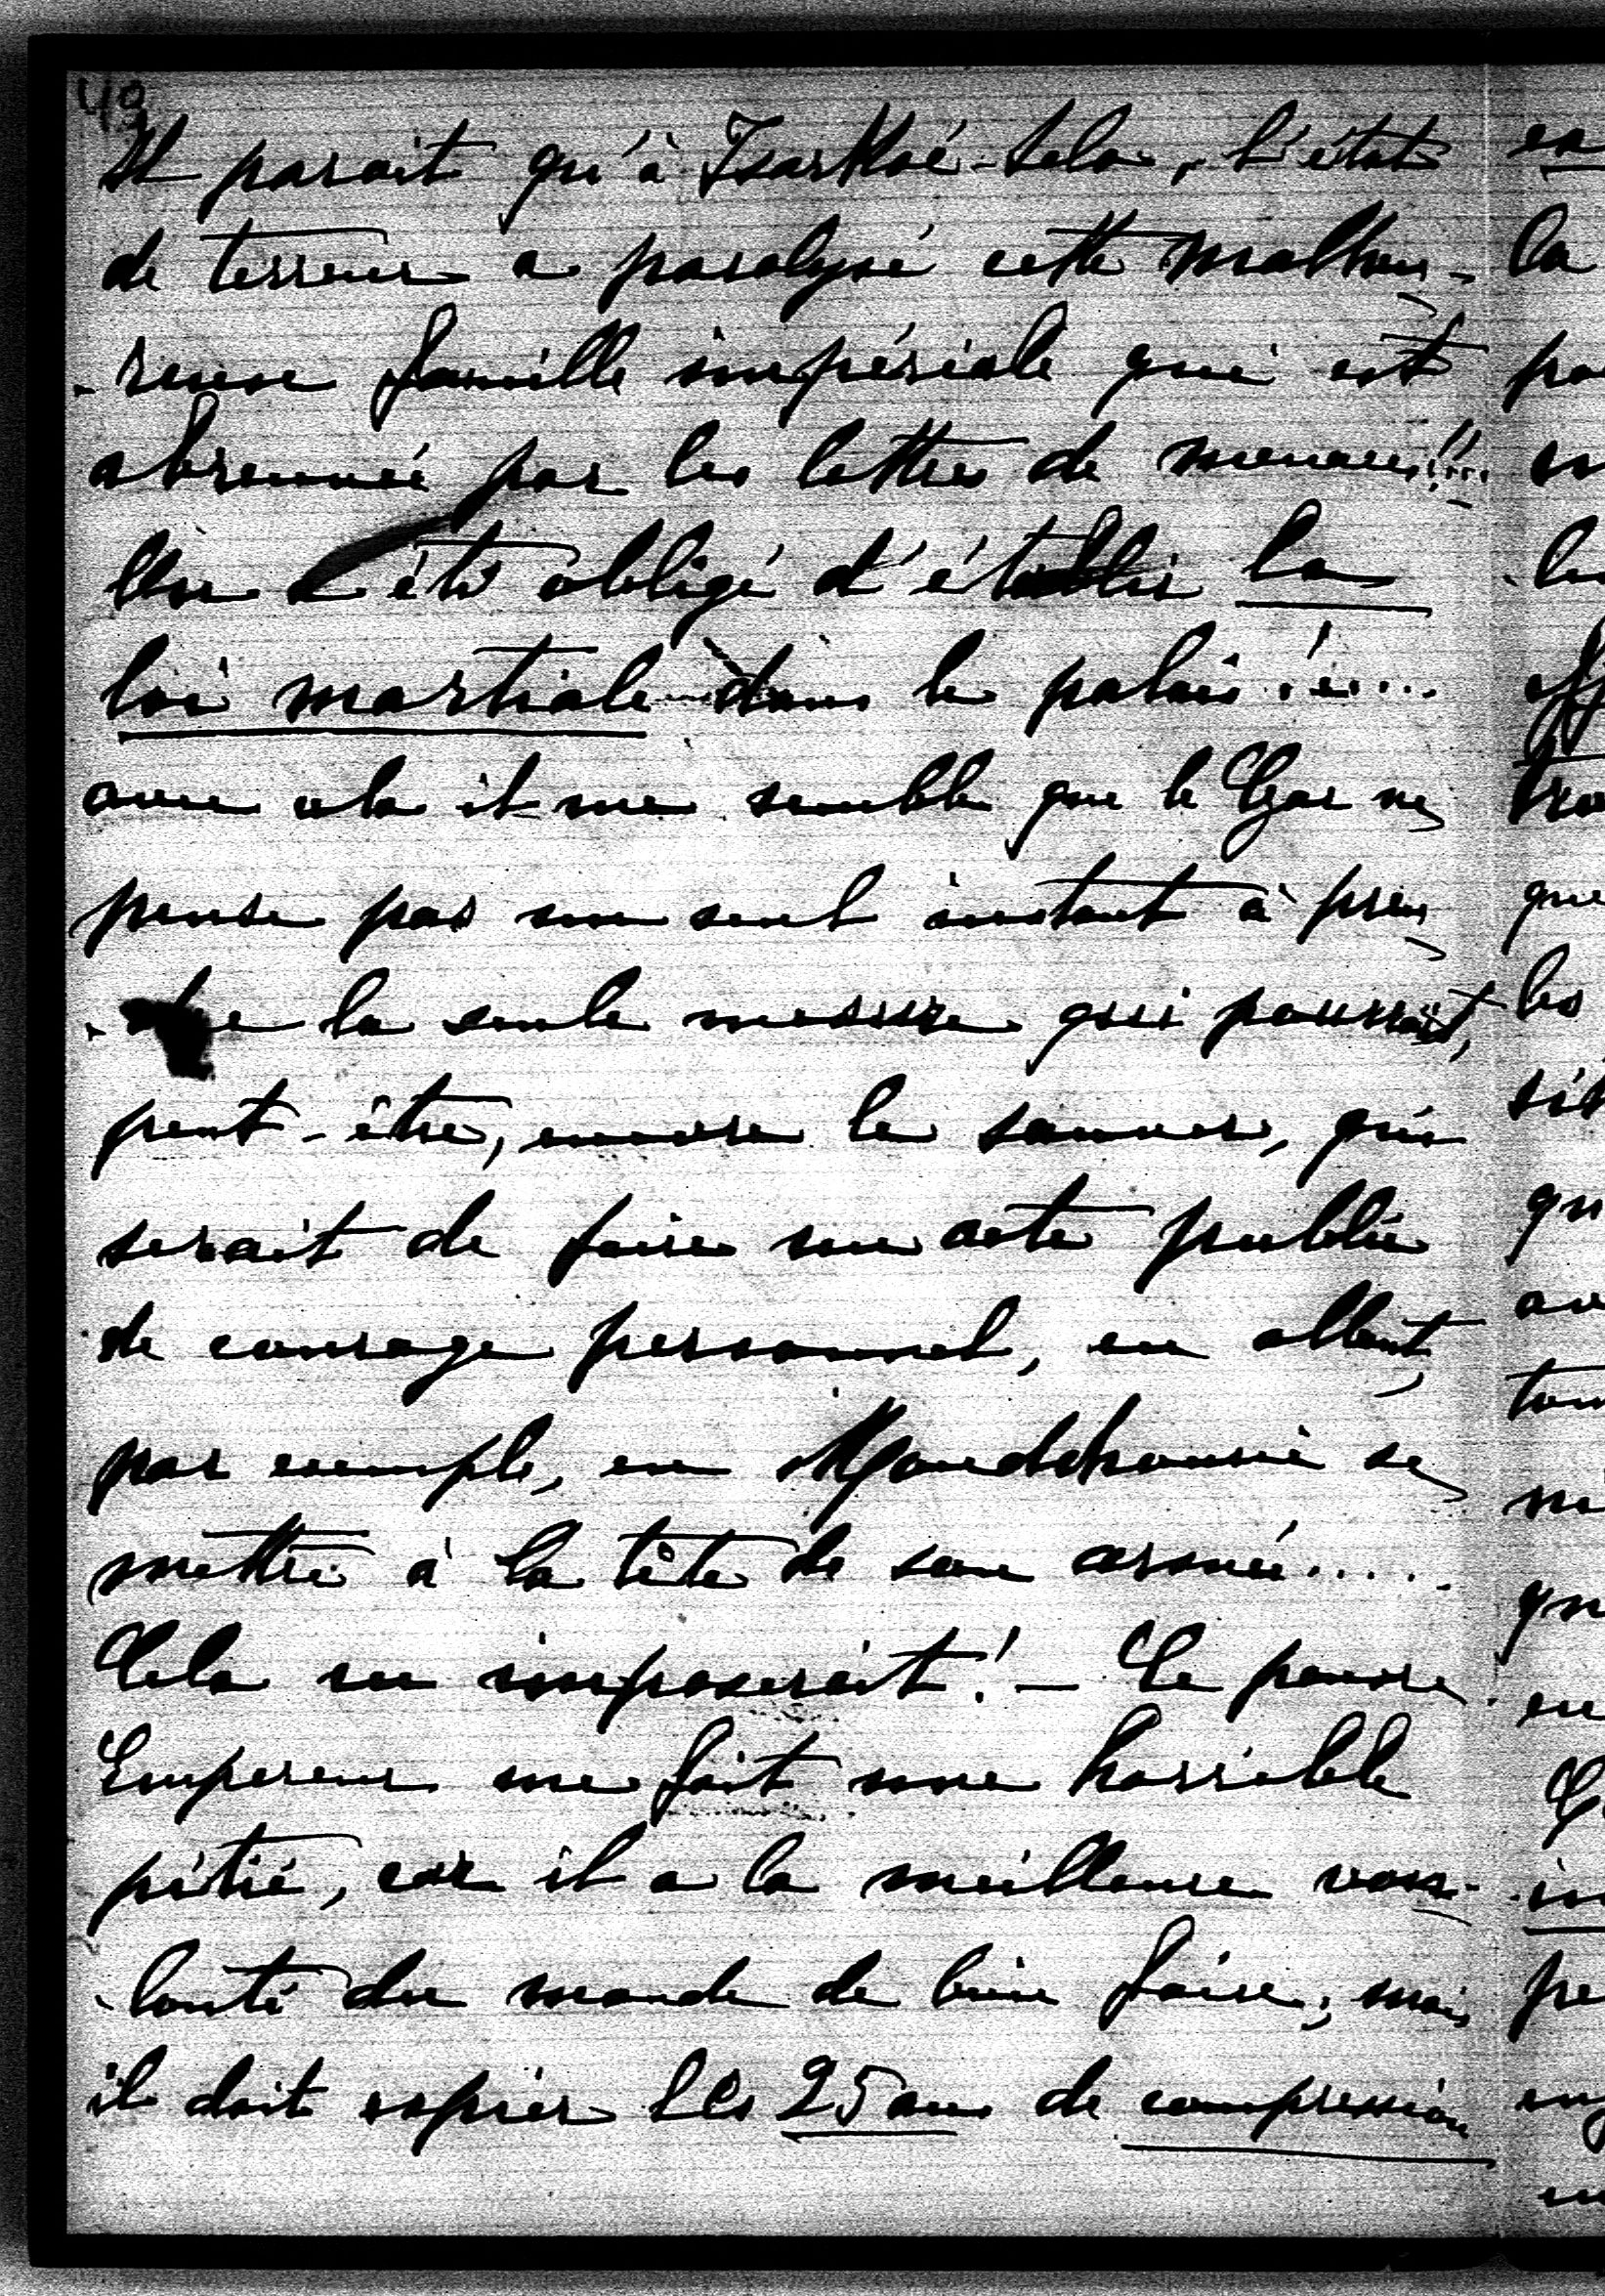 49
Il parait qu'à Tsarkoé-Selo, l'état
de terreur a paralysé cette malheu-
-reuse famille impériale qui est
abreuvée par les lettres de menaces!!...
On a été obligé d'établir la
loi martiale dans le palais!....
avec cela il me semble que le Czar ne
pense pas un seul instant à pren-
-dre la seule mesure qui pourrait,
peut-être, encore le sauver, qui
serait de faire un acte public
de courage personnel, en allant,
par exemple, en Mandchourie se
mettre à la tête de son armée.....
Cela en imposerait! — Ce pauvre
Empereur me fait une horrible
pitié, car il a la meilleure vo-
-lonté du monde de bien faire; mais
il doit expier les 25 ans de compression